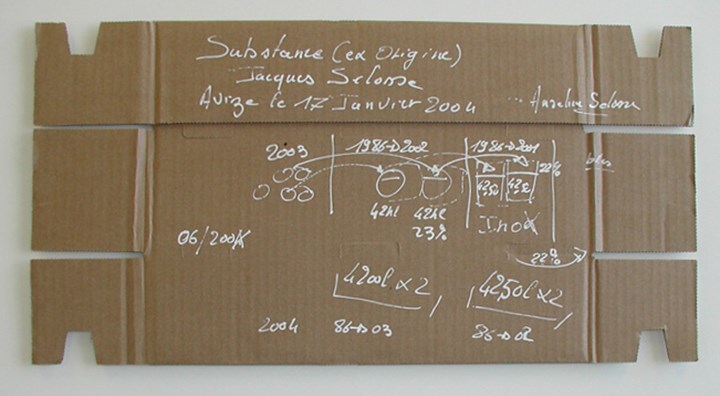 Substance (ex Origine)
Jacques Selosse
Avize le 17 Janvier 2004 ... Anselme Selosse
2003 1986→2002 1986→2001
22%
42,50 42,50
42hl 42hl Inox
23%
06/200
22%
4200l x 2 4250l x 2
2004 86→03 86→02